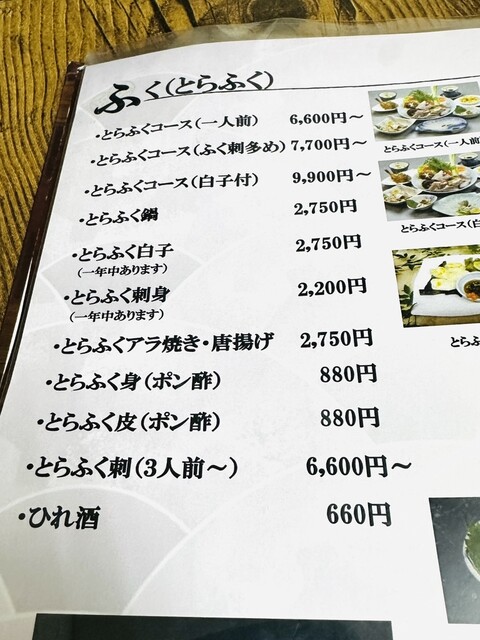 ふく(とらふく)
・とらふくコース(一人前) 6,600円～
・とらふくコース(ふく刺多め) 7,700円～
・とらふくコース(白子付) 9,900円～
・とらふく鍋 2,750円
・とらふく白子 2,750円
(一年中あります)
・とらふく刺身 2,200円
(一年中あります)
・とらふくアラ焼き・唐揚げ 2,750円
・とらふく身(ポン酢) 880円
・とらふく皮(ポン酢) 880円
・とらふく刺(3人前～) 6,600円～
・ひれ酒 660円
とらふくコース(一人前
とらふくコース(白
とらふ